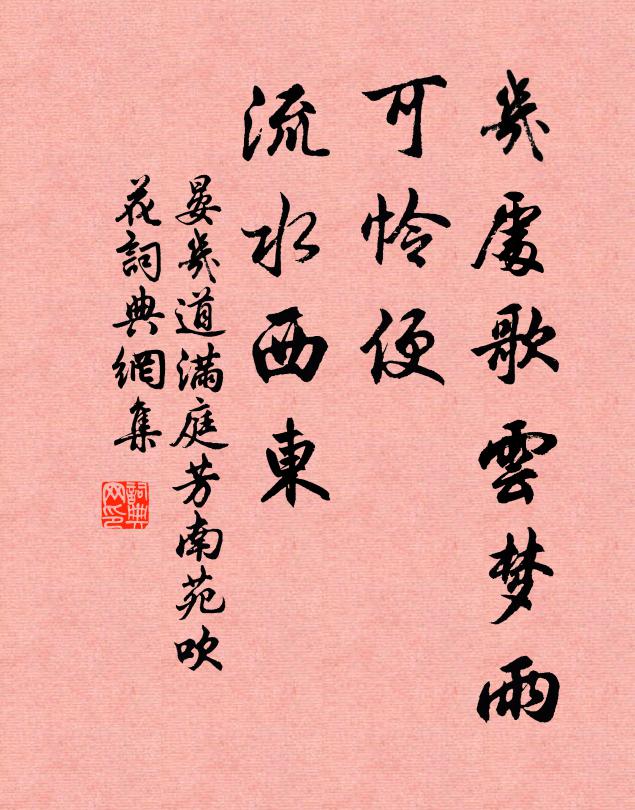 幾處歌雲梦雨
可怜便
流水西東
晏幾道滿庭芳南苑吹
花詞典網集
詞典
网印